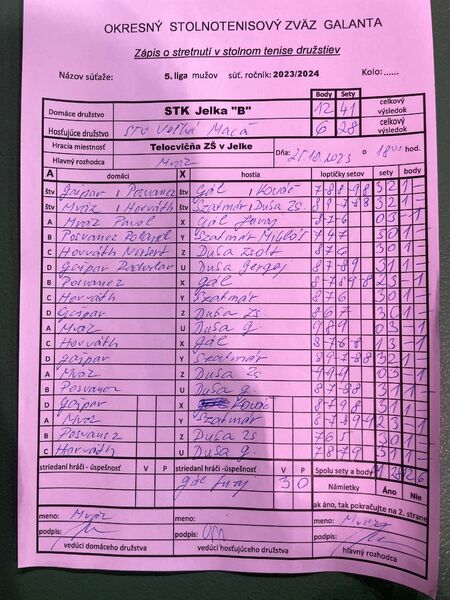 OKRESNÝ STOLNOTENISOVÝ ZVÄZ GALANTA
Zápis o stretnutí v stolnom tenise družstiev
Názov súťaže: 5. liga mužov súť. ročník: 2023/2024 Kolo:......
Body Sety
Domáce družstvo STK Jelka "B" 12 41 celkový výsledok
Hosťujúce družstvo STO Veľká Mača 6 28 celkový výsledok
Hracia miestnosť Telocvičňa ZŠ v Jelke Dňa: 21.10.2023 o 18 00 hod.
Hlavný rozhodca Mráz
A domáci X hostia loptičky setov sety body
štv Gašpar, Posvancz štv Gál, Kováč 7-88-98 32 1-
štv Mráz, Horváth štv Szatmár, Duša Zs. 89-788 32 1-
A Mráz Pavol X Gál Juraj 8-76 03 -1
B Posvancz Roland Y Szatmár Mikloš 747 30 1-
C Horváth Norbert Z Duša Zsolt 876 30 1-
D Gašpar U Duša Gergej 87-89 31 1-
B Posvancz X Gál 23 -1
C Horváth Y Szatmár 876 30 1-
D Gašpar Z Duša Zs 867 30 1-
A Mráz U Duša G. 989 03 -1
C Horváth X Gál 8-768 13 -1
D Gašpar Y Szatmár 89-788 32 1-
A Mráz Z Duša Zs 03 -1
B Posvancz U Duša G. 87-88 31 1-
D Gašpar X Kováč 8-798 31 1-
A Mráz Y Szatmár 23 -1
B Posvancz Z Duša Zs 765 30 1-
C Horváth U Duša G. 78-79 31 1-
striedaní hráči - úspešnosť V P striedaní hráči - úspešnosť V P Spolu sety a body
Gál Juraj 3 0 Námietky Áno Nie
ak áno, tak pokračujte na 2. strane
meno: Mráz meno: meno: Mráz
podpis: podpis: podpis:
vedúci domáceho družstva vedúci hosťujúceho družstva hlavný rozhodca